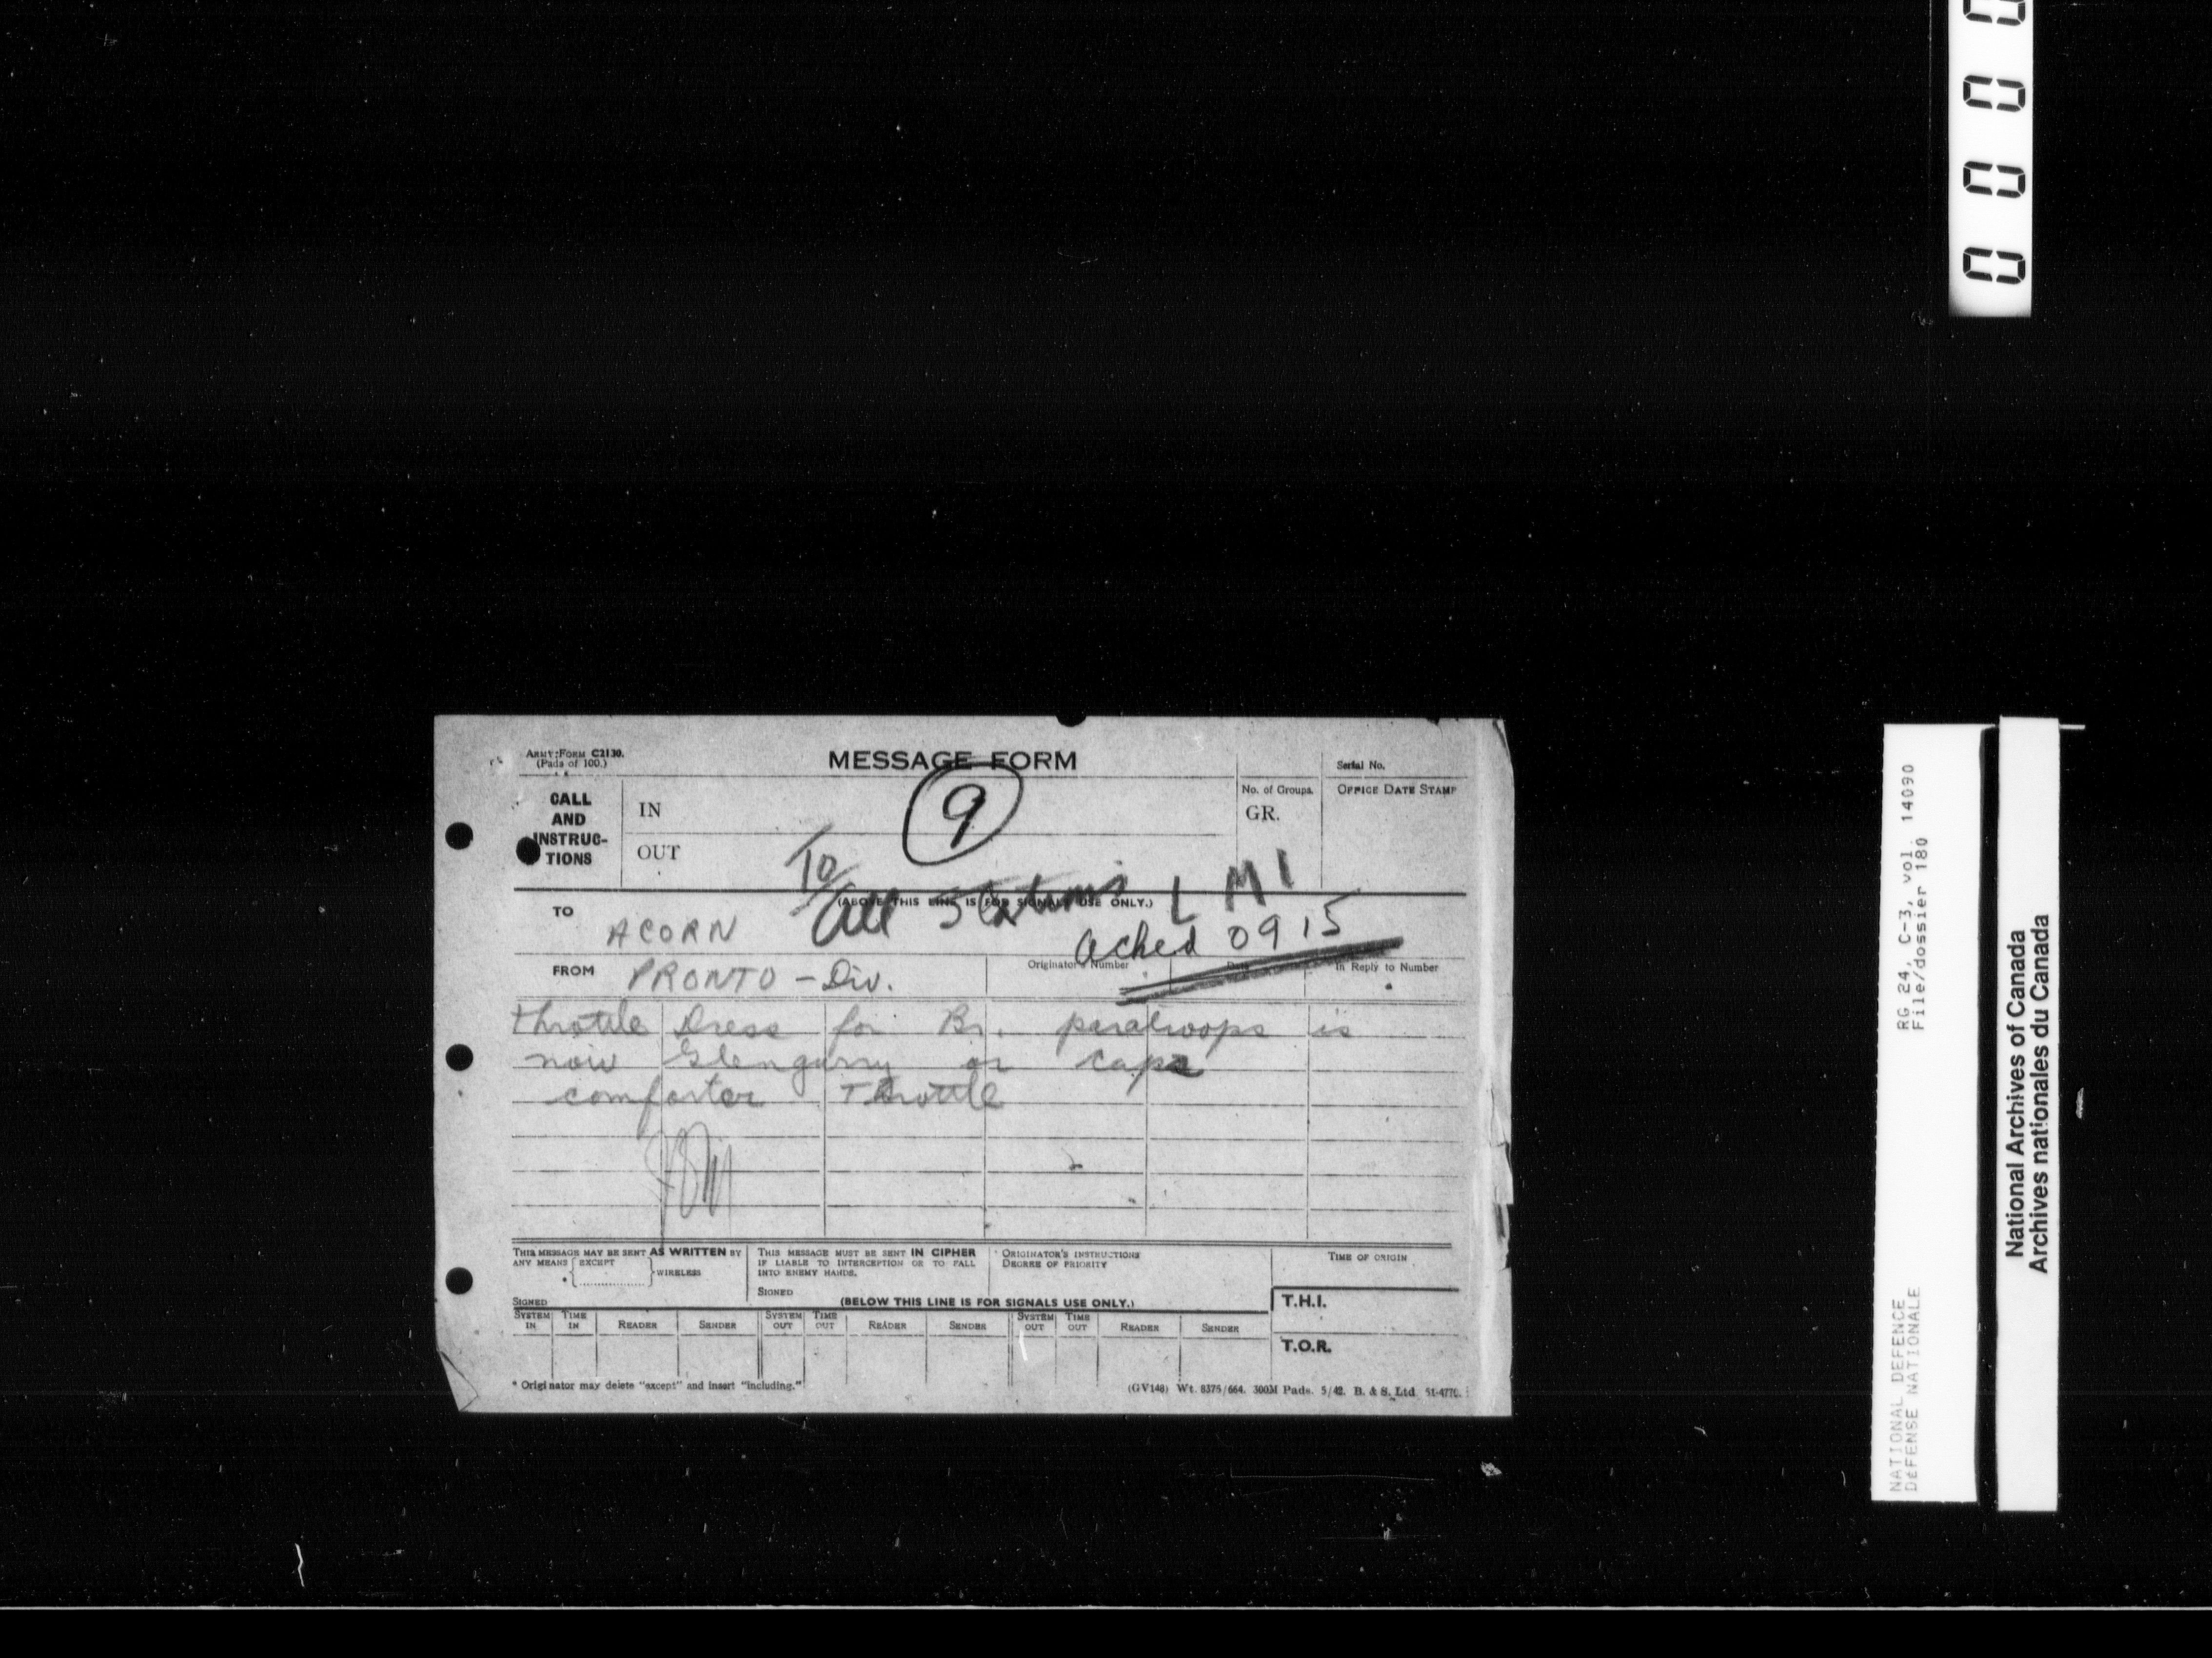 0 0 0 0
ARMY FORM C2130.
(Pads of 100.)
MESSAGE FORM
Serial No.
CALL
AND
INSTRUC-
TIONS
IN
OUT
9
No. of Groups.
GR.
OFFICE DATE STAMP
To
All Stations L M I
(ABOVE THIS LINE IS FOR SIGNALS USE ONLY.)
TO ACORN
acked 0915
FROM PRONTO - Div.
Originator's Number
Date
In Reply to Number
Throttle Dress for Br. paratroops is
now Glengarry or caps
comforter Throttle
THIS MESSAGE MAY BE SENT AS WRITTEN BY
ANY MEANS EXCEPT
* WIRELESS
SIGNED
THIS MESSAGE MUST BE SENT IN CIPHER
IF LIABLE TO INTERCEPTION OR TO FALL
INTO ENEMY HANDS.
SIGNED
ORIGINATOR'S INSTRUCTIONS
DEGREE OF PRIORITY
TIME OF ORIGIN
(BELOW THIS LINE IS FOR SIGNALS USE ONLY.)
T.H.I.
SYSTEM IN TIME IN READER SENDER SYSTEM OUT TIME OUT READER SENDER SYSTEM OUT TIME OUT READER SENDER
T.O.R.
* Originator may delete "except" and insert "including."
(GV148) Wt. 8375/664. 300M Pads. 5/42. B. & S. Ltd. 51-4770.
RG 24, C-3, vol. 14090
File/dossier 180
NATIONAL DEFENCE
DEFENSE NATIONALE
National Archives of Canada
Archives nationales du Canada